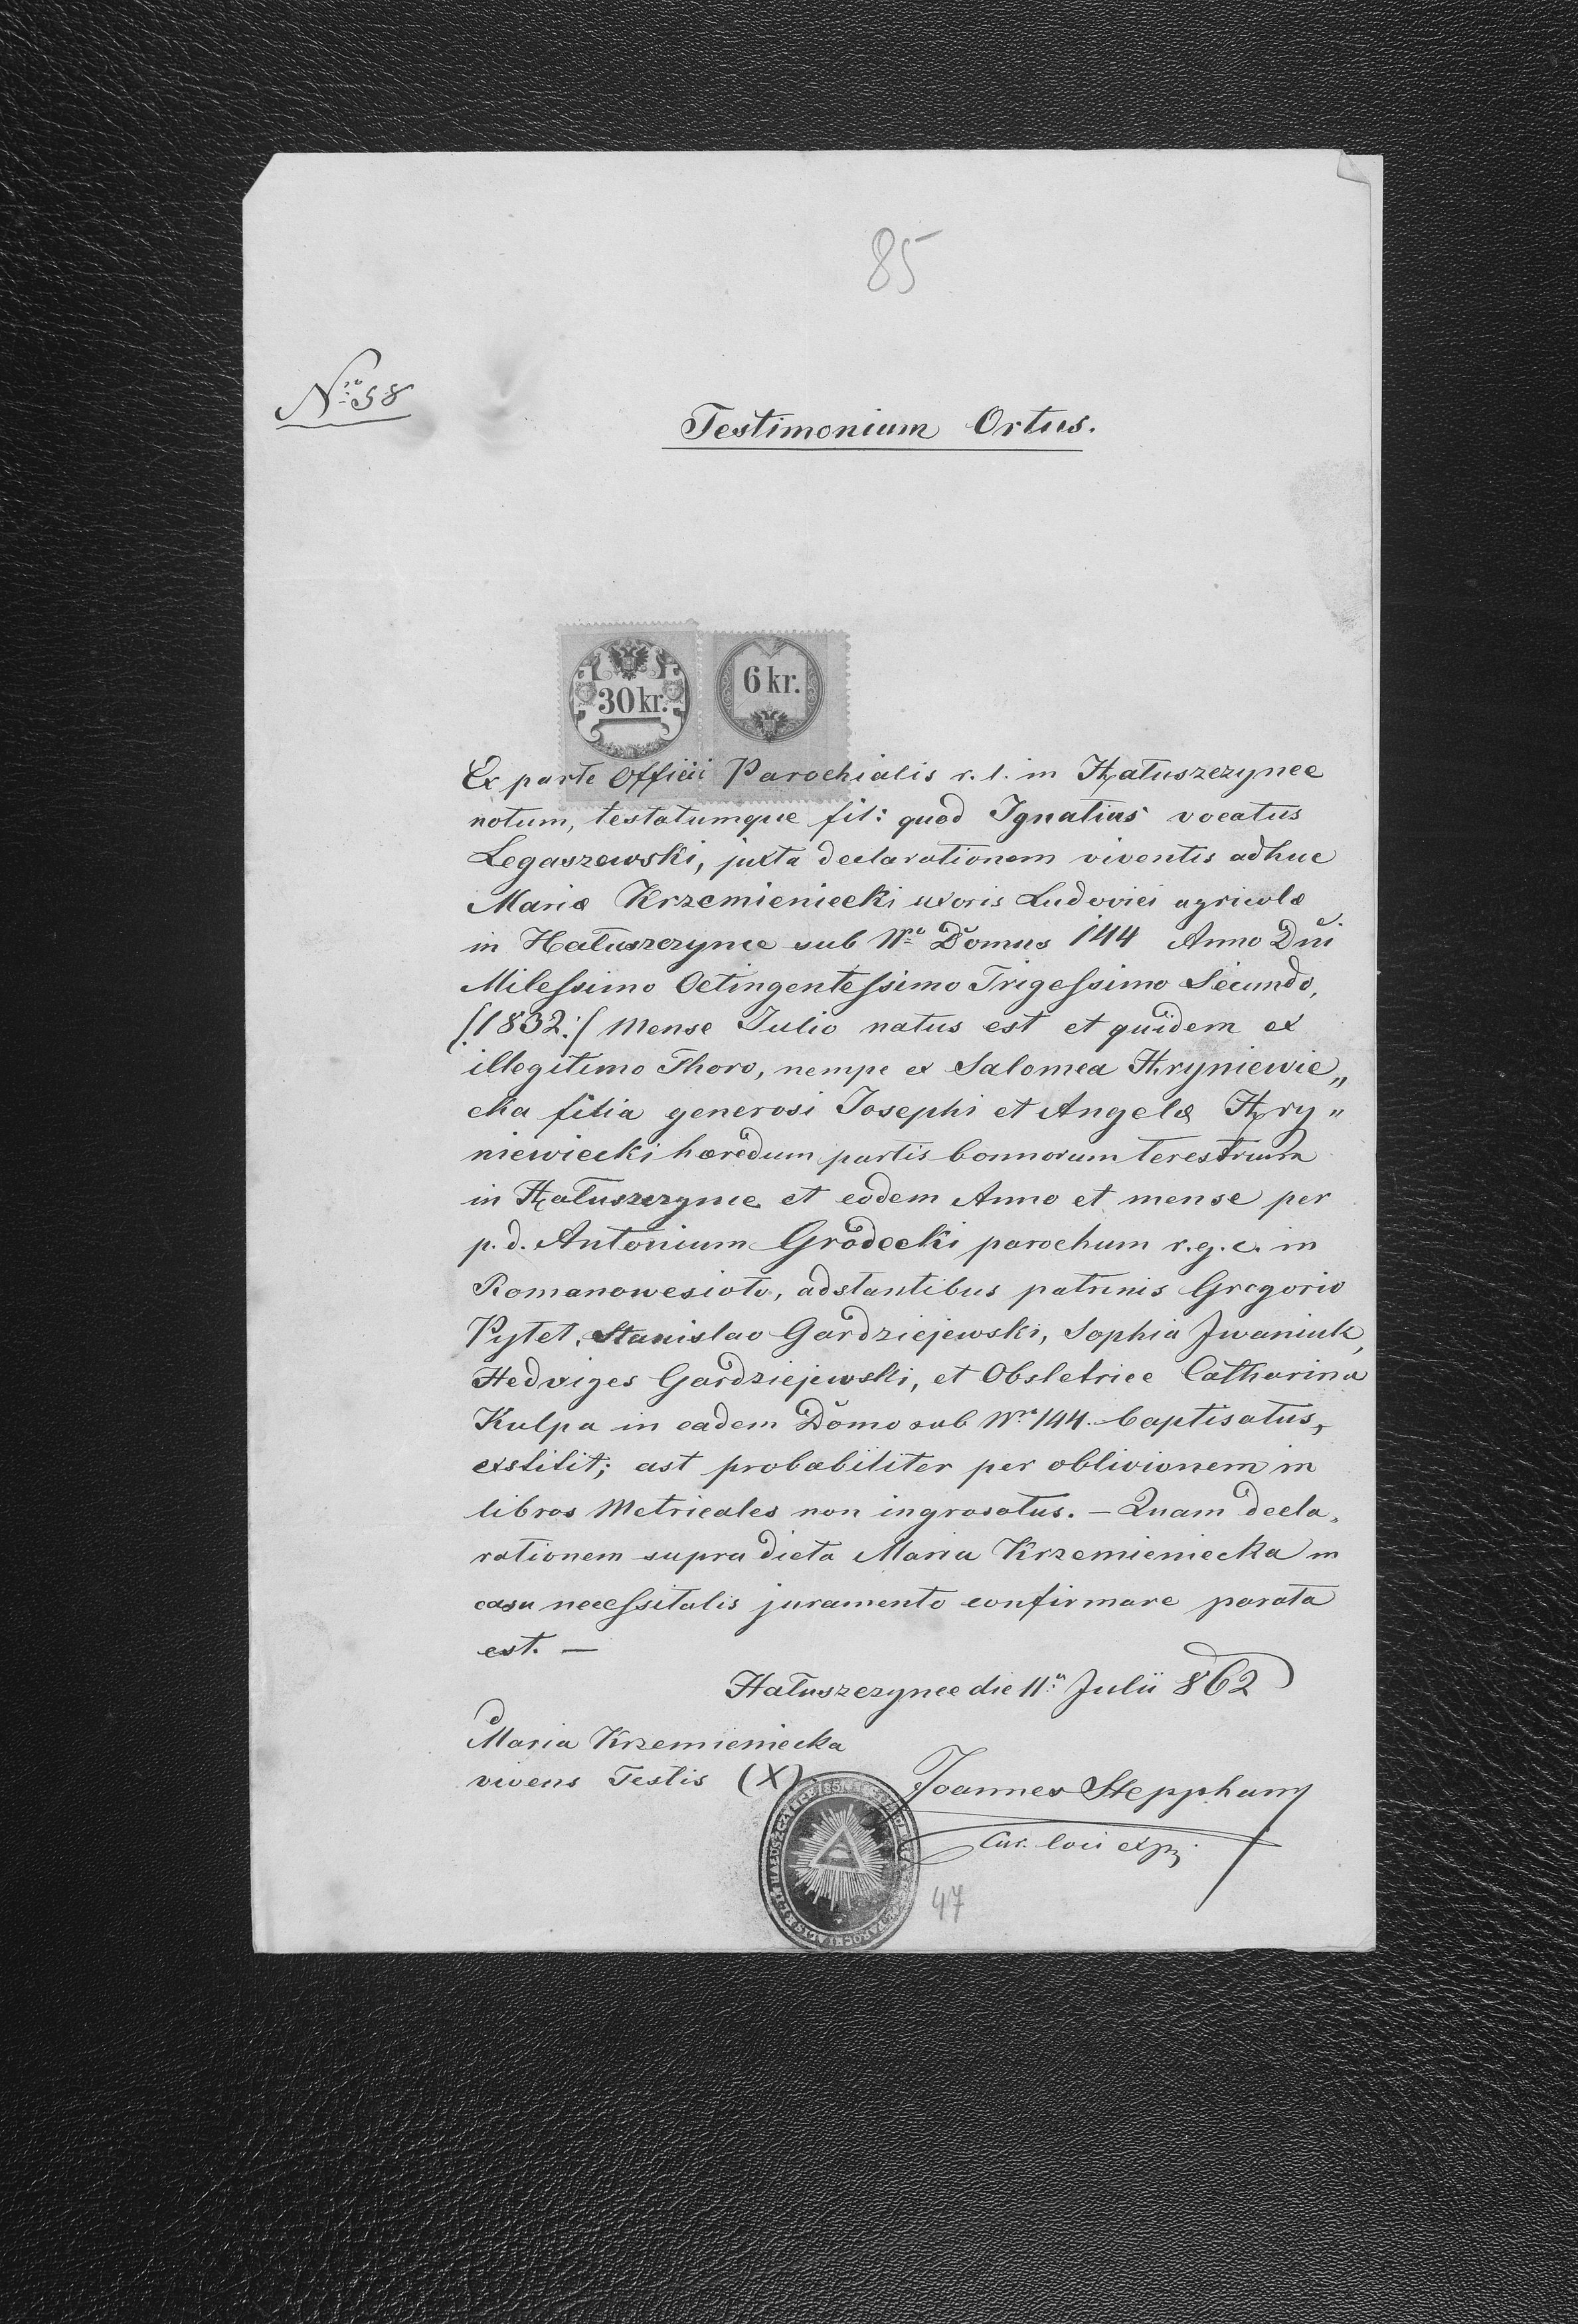 85
Nro 58
Testimonium Ortus.
30 kr.
6 kr.
Ex parte Officii Parochialis r. l. in Hałuszczynce
notum, testatumque fit: quod Ignatius vocatus
Legaszewski, juxta declarationem viventis adhuc
Mariæ Krzemieniecki uxoris Ludovici agricolæ
in Hałuszczynce sub Nro Domus 144 Anno Dni
Milessimo Octingentessimo Trigessimo Secundo,
/:1832:/ Mense Julio natus est et quidem ex
illegitimo Thoro, nempe ex Salomea Hryniewie„
cka filia generosi Josephi et Angelæ Hry„
niewiecki hæredum partis bonnorum terestrium
in Hałuszczynce et eodem Anno et mense per
p. d. Antonium Grodecki parochum r. g. c. in
Romanowesioło, adstantibus patrinis Gregorio
Pytel, Stanislao Gardziejewski, Sophia Iwaniuk,
Hedviges Gardziejewski, et Obstetrice Catharina
Kulpa in eadem Domo sub Nro 144. baptisatus,
exstitit; ast probabiliter per oblivionem in
libros Metricales non ingrosatus. — Quam decla„
rationem supra dicta Maria Krzemieniecka in
casu necessitatis juramento confirmare parata
est. —
Hałuszczynce die 11a Julii 862
Maria Krzemieniecka
vivens Testis (X)
Joannes Steppham
Cur. loci exp.
47